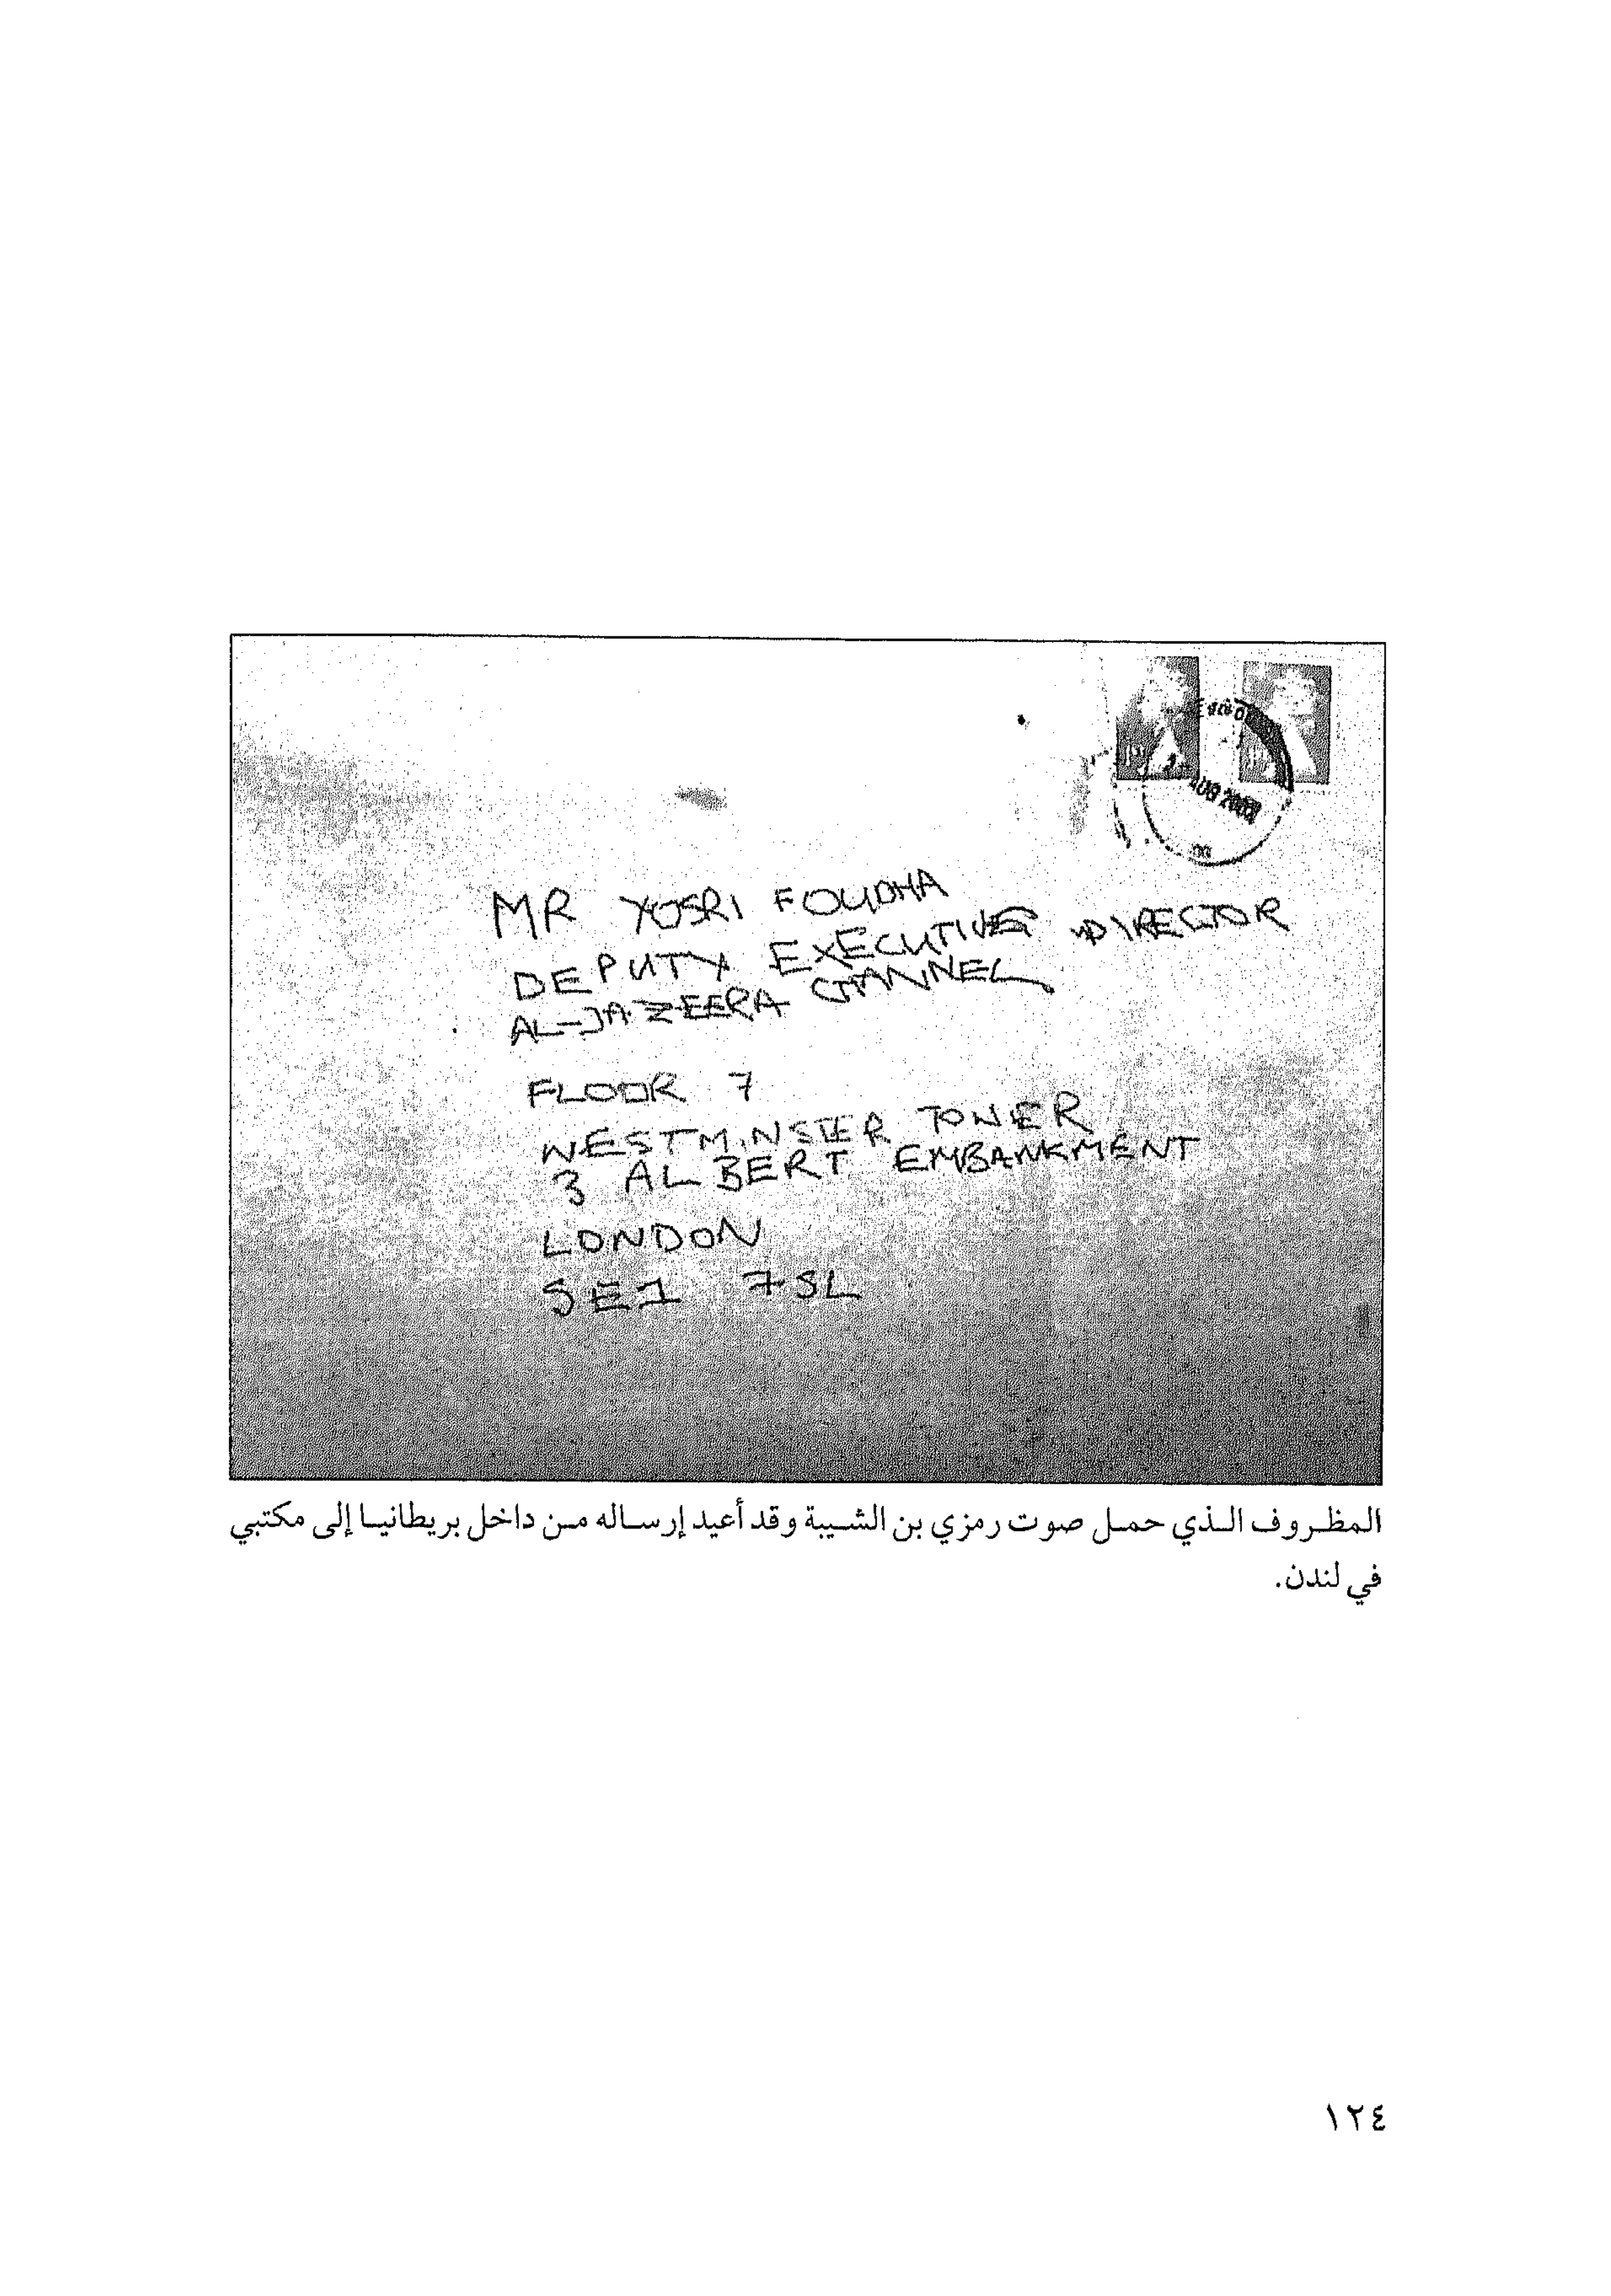 AUG
MR YOSRI FOUDHA
DEPUTY EXECUTIVE DIRECTOR
AL-JAZEERA CHANNEL
FLOOR 7
WESTMINSTER TOWER
3 ALBERT EMBANKMENT
LONDON
SE1 7SL
المظروف الذي حمل صوت رمزي بن الشيبة وقد أعيد إرساله من داخل بريطانيا إلى مكتبي
في لندن.
١٢٤